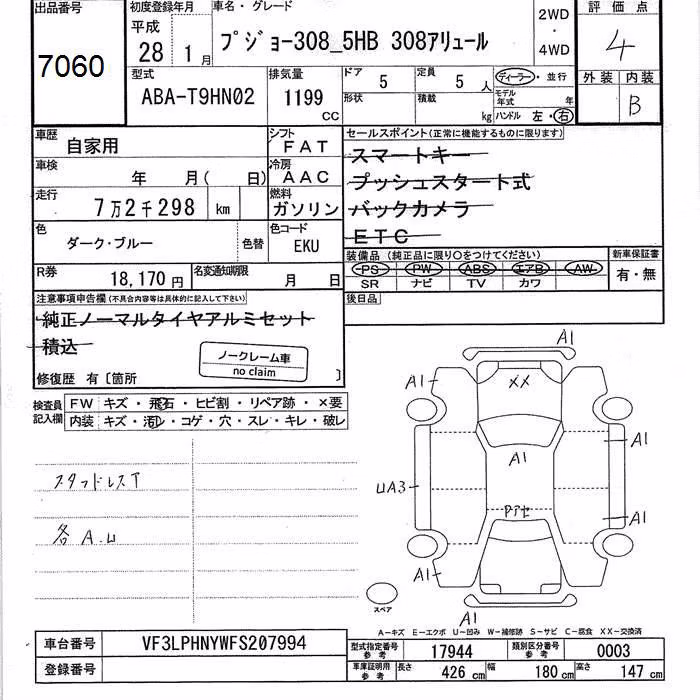 出品番号
7060
初度登録年月
平成
28 1月
車名・グレード
プジョー308_5HB 308アリュール
2WD
・
4WD
評価点
4
型式
ABA-T9HN02
排気量
1199
CC
ドア 5
定員 5 人
形状
積載 kg
ディーラー・並行
モデル年式 年
ハンドル 左・右
外装 内装
B
車歴 自家用
シフト FAT
車検 年 月( 日)
冷房 AAC
走行 7万2千298 km
燃料 ガソリン
色 ダーク・ブルー
色替
色コード EKU
R券 18,170円
名変通知期限 月 日
セールスポイント(正常に機能するものに限ります)
スマートキー
プッシュスタート式
バックカメラ
ETC
装備品(純正品に限り○をつけてください)
PS PW ABS エアB AW
SR ナビ TV カワ
新車保証書
有・無
後日品
注意事項申告欄(不具合内容等は具体的に記入して下さい)
純正ノーマルタイヤアルミセット
積込
ノークレーム車
no claim
修復歴 有〔箇所 〕
検査員記入欄
FW キズ・飛石・ヒビ割・リペア跡・×要
内装 キズ・汚レ・コゲ・穴・スレ・キレ・破レ
スタッドレスT
各 A.U
A1
A1
XX
A1
A1
UA3
Pアセ
A1
A1
A1
スペア
A-キズ E-エクボ U-凹み W-補修跡 S-サビ C-腐食 XX-交換済
車台番号 VF3LPHNYWFS207994
登録番号
型式指定番号 参考 17944
類別区分番号 参考 0003
車庫証明用 参考 長さ 426 cm 幅 180 cm 高さ 147 cm